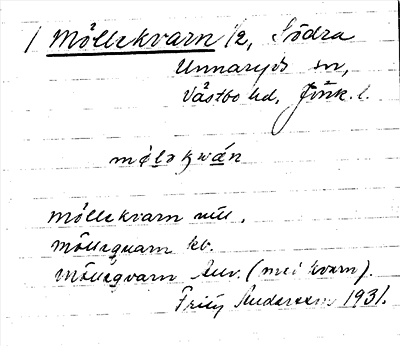 / Möllekvarn 1/2, Södra
Unnaryds sn,
Västbo hd, Jönk. l.
mølǝkwán
Möllekvarn
Möllequarn kb.
Möllegvarn Anv. (mei kvarn).
Fritz Anderson 1931.